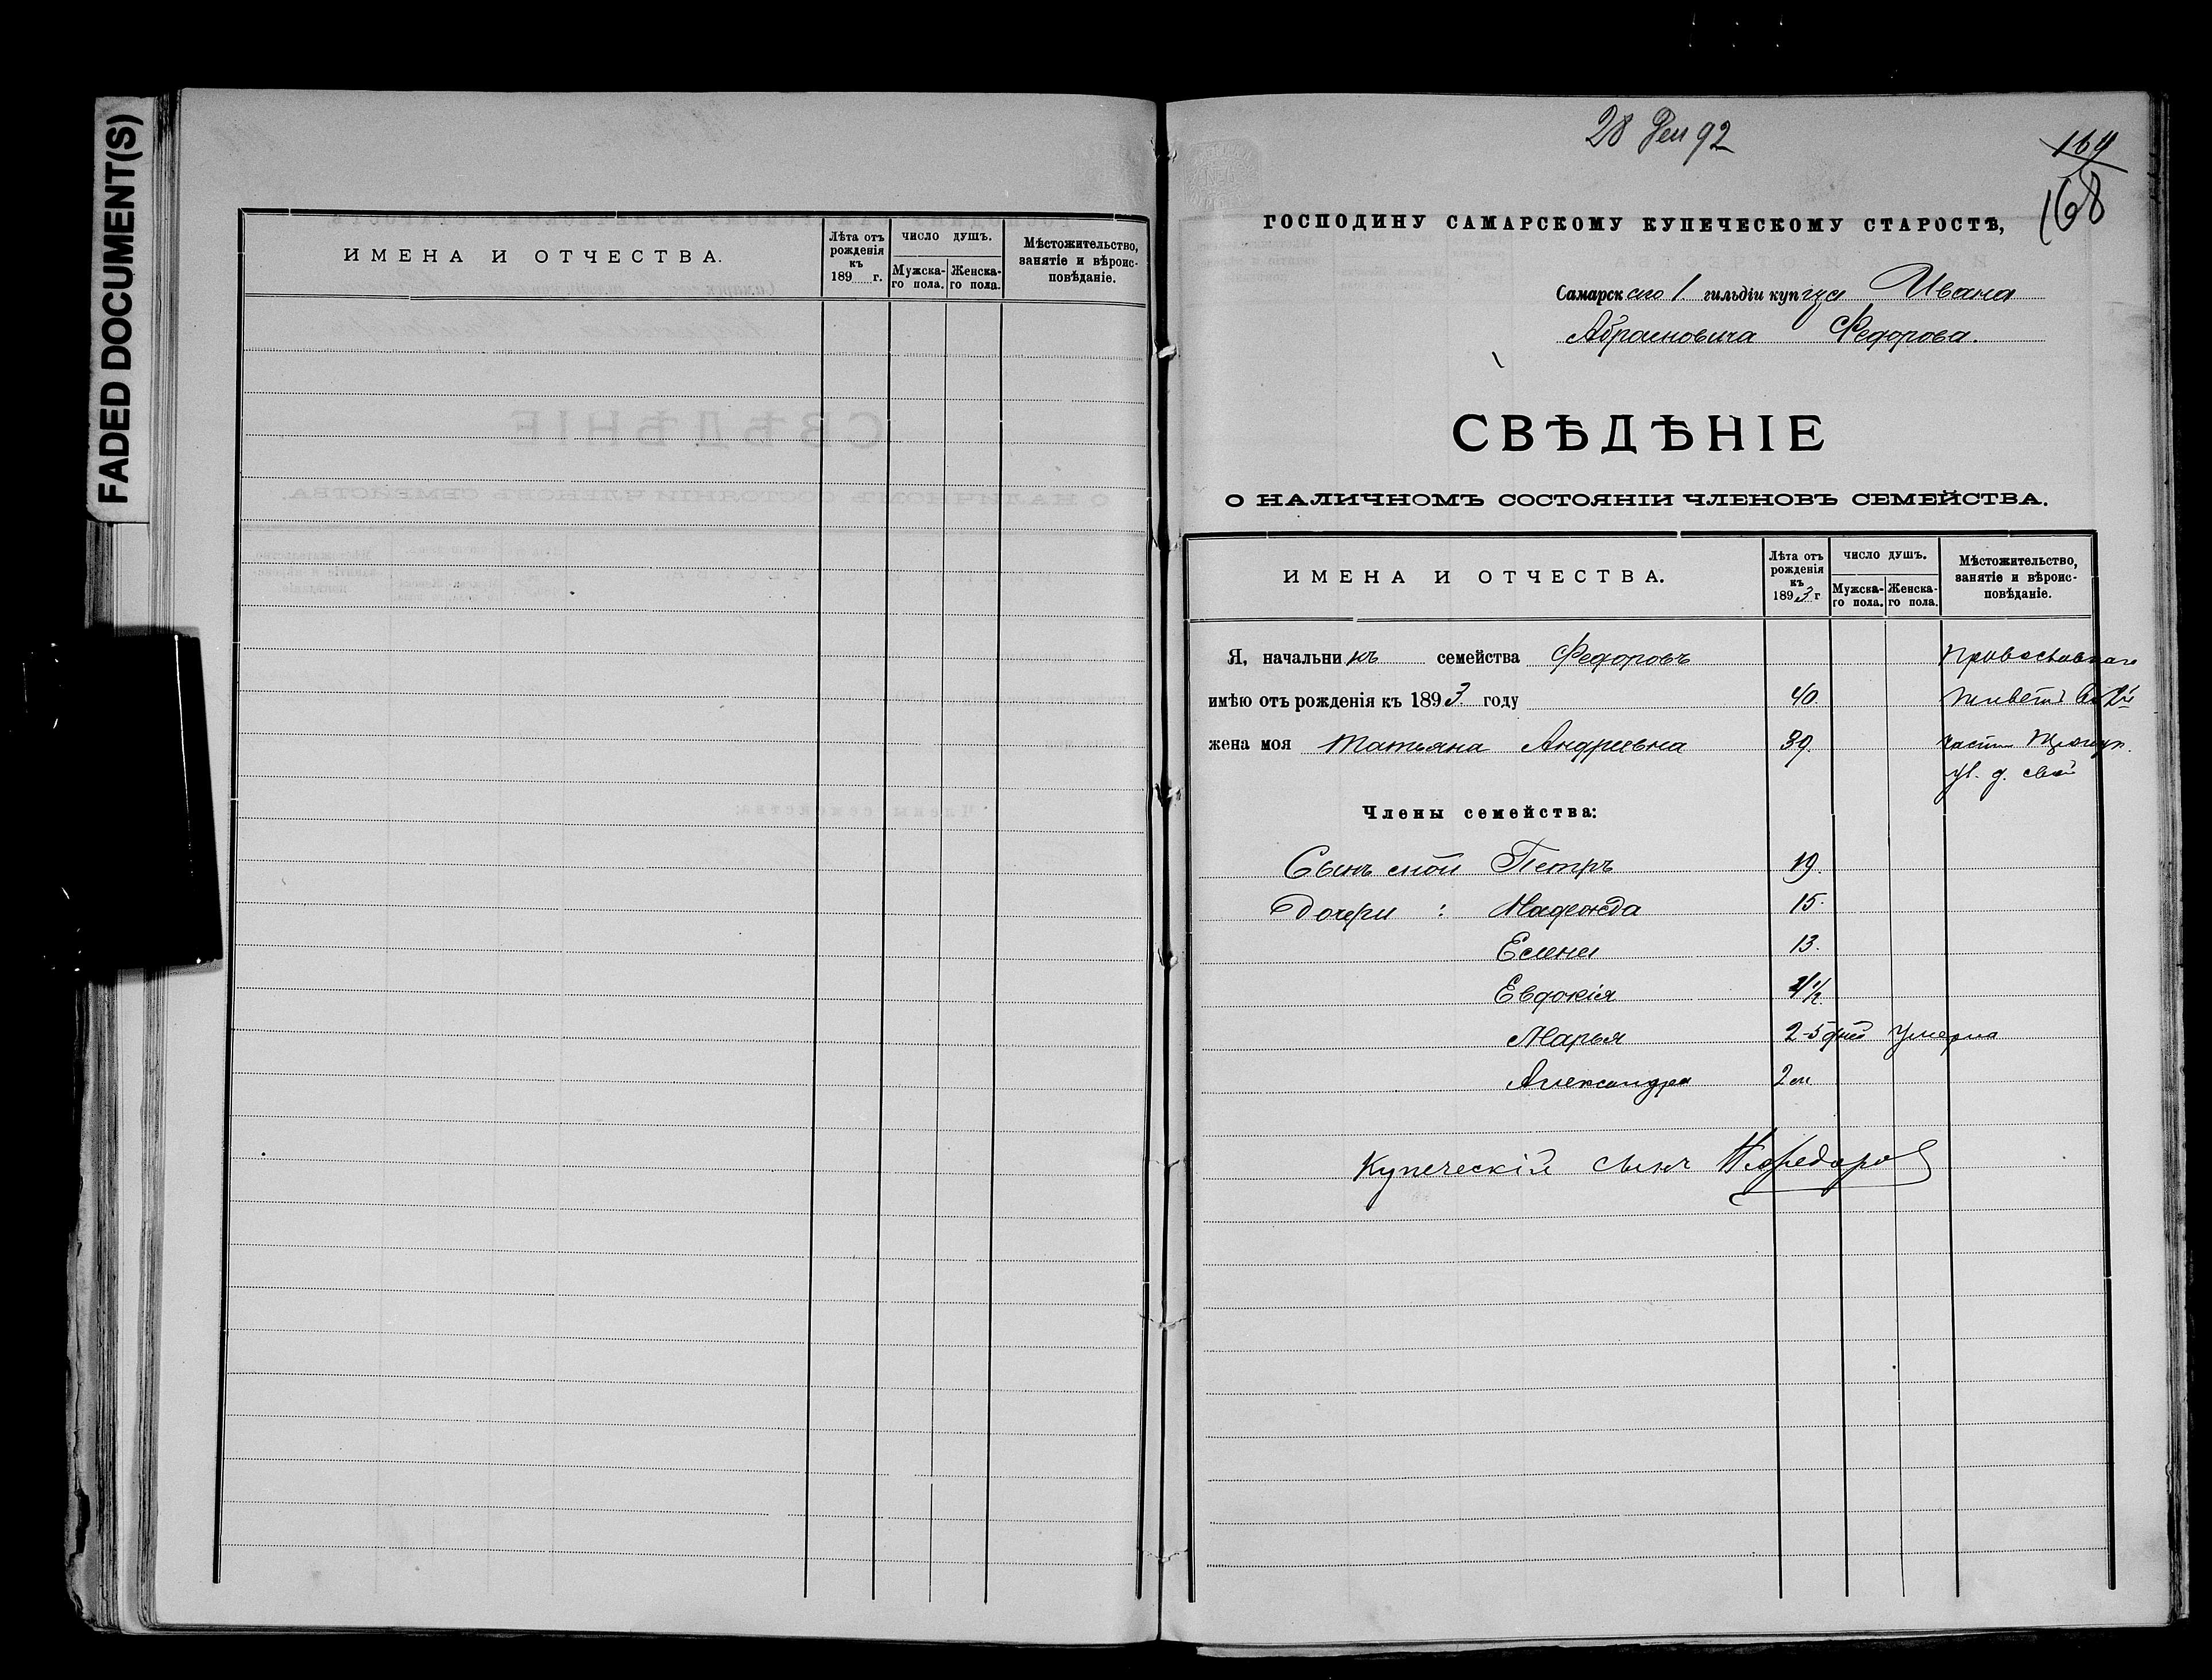 FADED DOCUMENT(S)
ИМЕНА И ОТЧЕСТВА.
Лѣта отъ рожденія къ 189 г.
ЧИСЛО ДУШЪ.
Мужска-го пола.
Женска-го пола.
Мѣстожительство, занятіе и вѣроис-повѣданіе.
28 Дек 92
169
168
ГОСПОДИНУ САМАРСКОМУ КУПЕЧЕСКОМУ СТАРОСТѢ,
Самарскаго 1. гильдіи купца Ивана
Абрамовича Федорова.
СВѢДѢНІЕ
О НАЛИЧНОМЪ СОСТОЯНІИ ЧЛЕНОВЪ СЕМЕЙСТВА.
ИМЕНА И ОТЧЕСТВА.
Лѣта отъ рожденія къ 1893 г
ЧИСЛО ДУШЪ.
Мужска-го пола.
Женска-го пола.
Мѣстожительство, занятіе и вѣроис-повѣданіе.
Я, начальникъ семейства Федоровъ Православнаго
имѣю отъ рожденія къ 1893 году 40. живетъ во 2й
жена моя Татьяна Андреевна 39. части
ул. д. свой
Члены семейства:
Сынъ мой Петръ 19.
Дочери : Надежда 15.
Елена 13.
Евдокія
Марья 2-5 дней умерла
Александра 2 м
Купеческій сынъ П Федоров